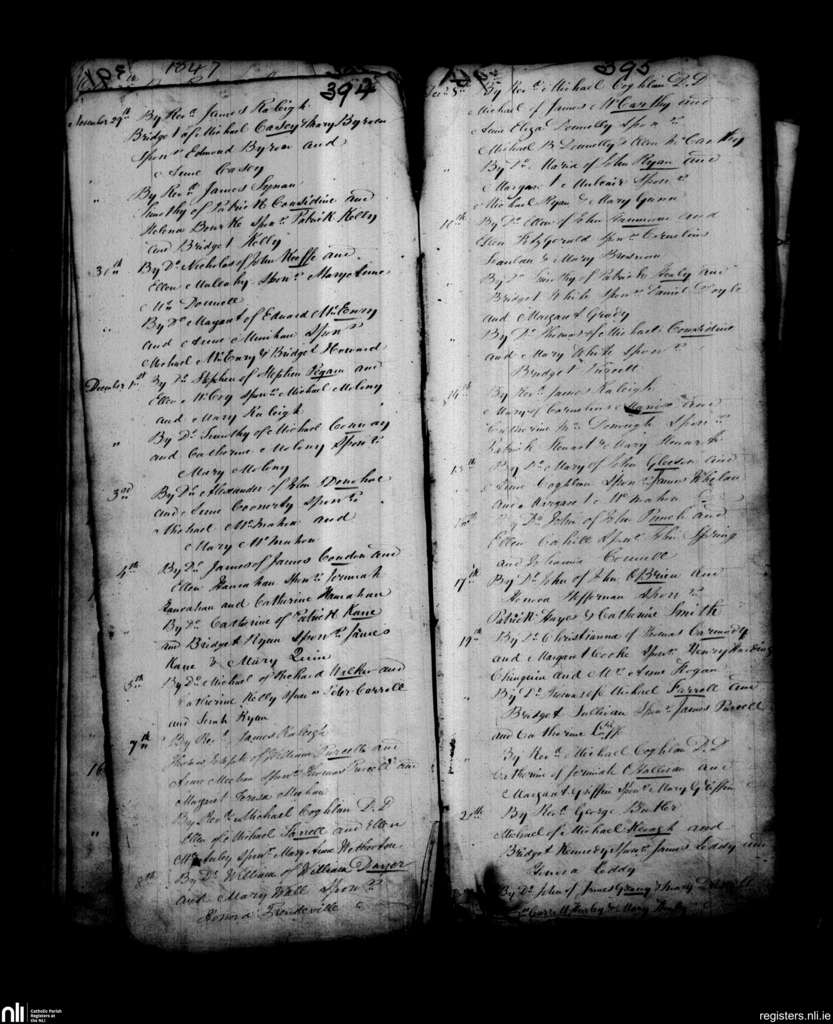 1847
394
November 29th By Revd. James Raleigh
Bridget of Michael Casey & Mary Byron
Sponrs Edmond Byron and
Anne Casey
" By Revd. James Synan
Timothy of Patrick Considine and
Helena Bourke Sponrs Patrick Kelly
and Bridget Kelly
30th By Do. Nicholas of John Keeffe and
Ellen Mulcahy Sponrs Mary Anne
Mc Donnell
" By Do. Margaret of Edward McEnery
and Anne Minihan Sponrs
Michael McEnery & Bridget Howard
December 1st By Do. Stephen of Stephen and
Ellen Sponrs Michael Molony
and Mary Raleigh
" By Do. Timothy of Michael Conway
and Catherine Molony Sponrs
Mary Molony
3rd By Do. Alexander of John
and Anne Sponrs
Michael McMahon and
Mary McMahon
4th By Do. James of James Condon and
Ellen Hanrahan Sponrs Jeremiah
Hanrahan and Catherine Hanrahan
" By Do. Catherine of Patrick Kane
and Bridget Ryan Sponrs James
Kane & Mary Quin
5th By Do. Michael of Richard Walker and
Catherine Kelly Sponrs Peter Carroll
and Sarah Ryan
7th By Revd. James Raleigh
Thomas Joseph of William Purcell and
Anne Meehan Sponrs Thomas Purcell and
Margaret Teresa Meehan
By Revd. Michael Coghlan D.D
Ellen of Michael Farrell and Ellen
Sponrs Mary Anne
8th By Do. William of William Dwyer
and Mary Wall Sponrs
Honora
395
Dec 8th By Revd. Michael Coghlan D.D
Michael of James McCarthy and
Anne Eliza Donnelly Sponrs
Michael Donnelly & McCarthy
" By Do. Maria of John Ryan and
Margaret Sponrs
Michael Ryan & Mary Gunn
10th By Do. Ellen of John and
Ellen Fitzgerald Sponrs Cornelius
Scanlan & Mary Brosnan
By Do. Timothy of Patrick Healy and
Bridget White Sponrs Daniel Doyle
and Margaret Grady
" By Do. Thomas of Michael Considine
and Mary White Sponrs
Bridget Purcell
14th By Revd. James Raleigh
Mary of Cornelius and
Catherine Mc Donough Sponrs
Patrick Stewart & Mary
15th By Do. Mary of John Gleeson and
Anne Coghlan Sponrs James Whelan
and Margaret McMahon
By Do. John of John Punch and
Ellen Cahill Sponrs John Spring
and Johanna Connell
17th By Do. John of John OBrien and
Honora Heffernan Sponrs
Patrick Hayes & Catherine Smith
19th By Do. Christianna of Thomas Carmody
and Margaret Cooke Sponrs Henry Harding
and Mrs. Anne Hogan
" By Do. Thomas of Michael Farrell and
Bridget Sullivan Sponrs James Purcell
and Catherine
" By Revd. Michael Coghlan D.D
Catherine of Jeremiah OHalloran and
Margaret Griffin Sponrs Mary Griffin
20th By Revd. George Butler
Michael of Michael Keough and
Bridget Kennedy Sponrs James Leddy and
Teresa Leddy
By Do. John of James & Mary
Hurley & Mary
nli
Catholic Parish
Registers at
the NLI
registers.nli.ie